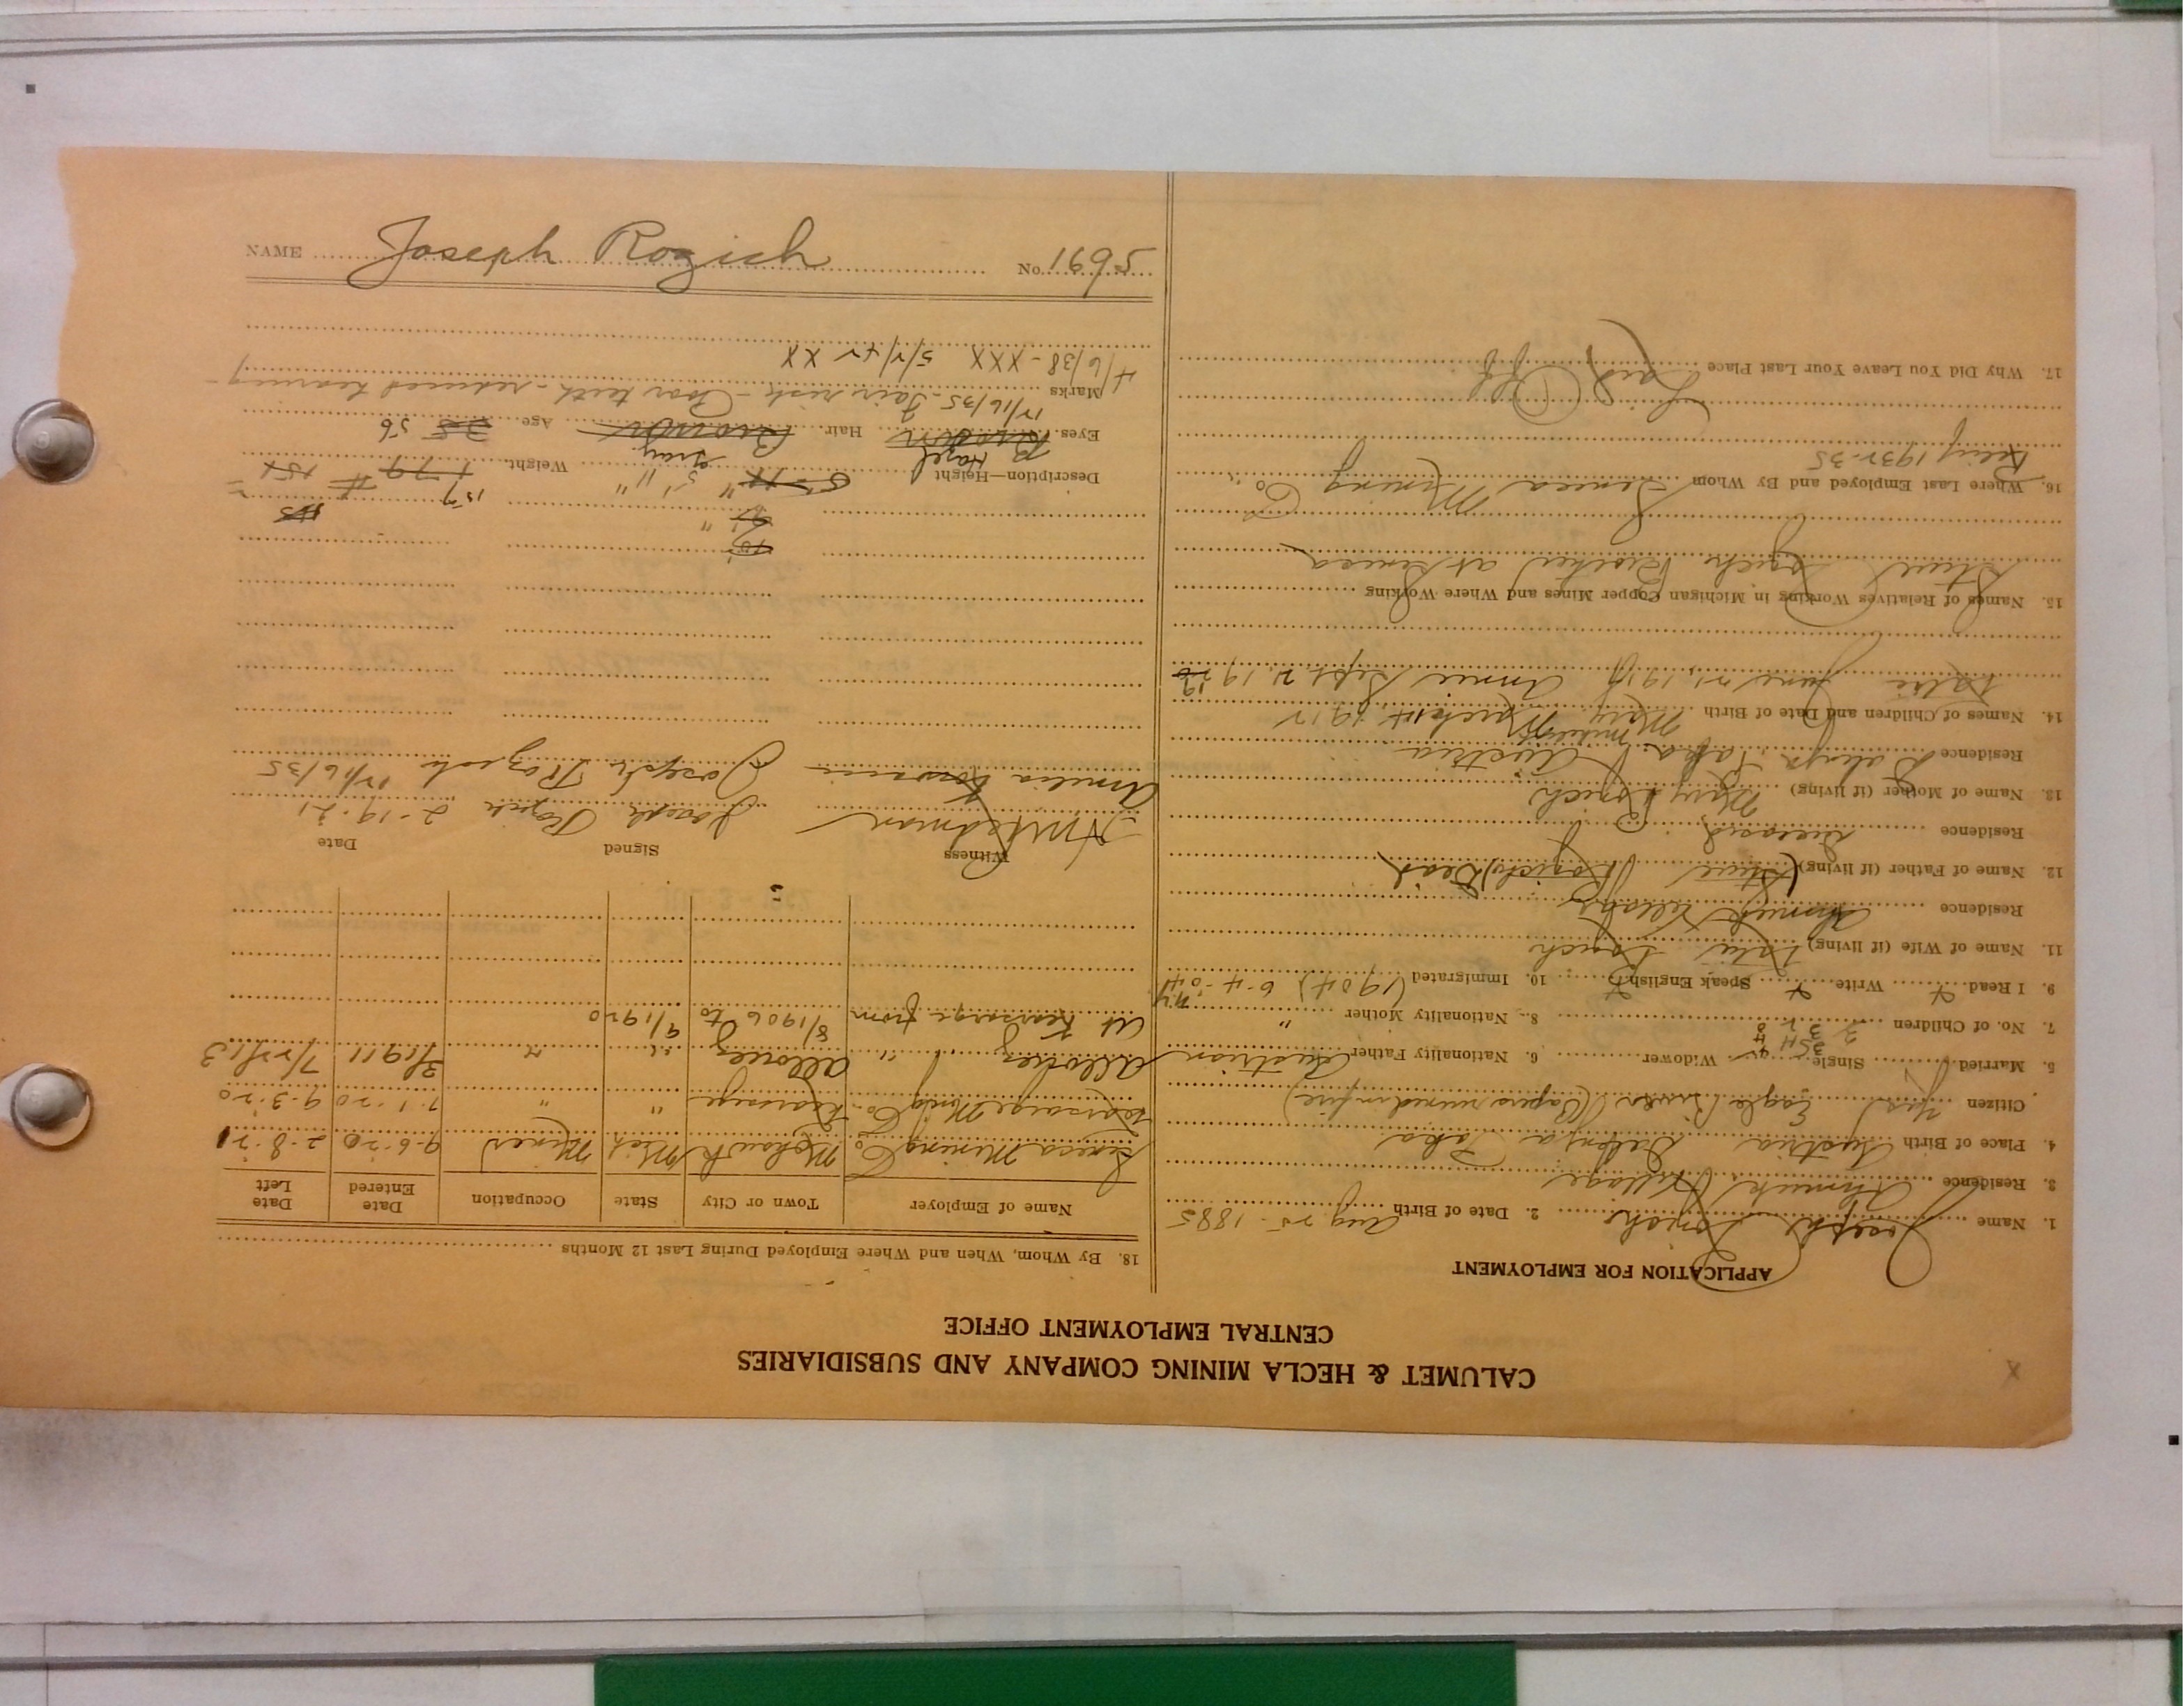 CALUMET & HECLA MINING COMPANY AND SUBSIDIARIES
CENTRAL EMPLOYMENT OFFICE
APPLICATION FOR EMPLOYMENT
1. Name Joseph 2. Date of Birth Aug 25- 1885
3. Residence Ahmeek Village
4. Place of Birth Austria Delenja Loka
Citizen Yes Eagle River (Papers burned in fire)
5. Married Single Widower 6. Nationality Father Austrian
7. No. of Children 8. Nationality Mother "
9. I Read Write Speak English 10. Immigrated (1904)
11. Name of Wife (if living) Katie
Residence Ahmeek Village
12. Name of Father (if living) (Steve Rozich) Dead
Residence deceased
13. Name of Mother (if living) Mary
Residence Delenja Loka Austria
14. Names of Children and Date of Birth Mary March 1912
Katie June 21, 1914 Annie Sept 2, 19
15. Names of Relatives Working in Michigan Copper Mines and Where Working
Steve Brother at Seneca
16. Where Last Employed and By Whom Seneca Mining Co.
1932-35
17. Why Did You Leave Your Last Place Laid Off
18. By Whom, When and Where Employed During Last 12 Months
Name of Employer Town or City State Occupation Date Entered Date Left
Seneca Mining Co. Mohawk Mich Miner 9-6-20 2-8-21
Kearsarge Mining Co. Kearsarge " " 7-1-20 9-3-20
Allouez " Allouez " " 3/1911 7/22/13
At Kearsarge from 8/1906 to 9/1920
Witness Signed Date
Joseph Rozich 2-19-21
Amelia Joseph Rozich 12/16/35
157
Description—Height 5' 11" Weight 179 #
Hazel Gray
Eyes Brown Hair Brown Age 35 56
Marks 12/16/35 - Fair risk - Poor teeth - reduced hearing -
4/6/38 - XXX 5/2/42 XX
NAME Joseph Rozich No. 1695